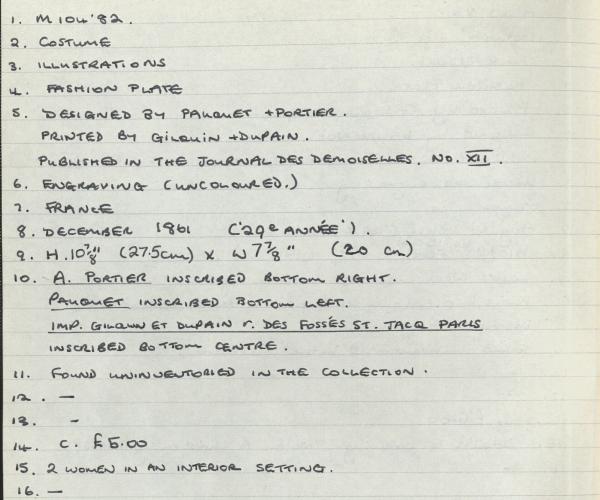 1. M104'82.
2. COSTUME
3. ILLUSTRATIONS
4. FASHION PLATE
5. DESIGNED BY PAUQUET + PORTIER.
PRINTED BY GILQUIN + DUPAIN.
PUBLISHED IN THE JOURNAL DES DEMOISELLES. NO. XII.
6. ENGRAVING (UNCOLOURED.)
7. FRANCE
8. DECEMBER 1861 ('29e ANNÉE').
9. H.10⅞" (27.5cm) x W 7⅞" (20 cm)
10. A. PORTIER INSCRIBED BOTTOM RIGHT.
PAUQUET INSCRIBED BOTTOM LEFT.
IMP. GILQUIN ET DUPAIN r. DES FOSSÉS ST. JACQ PARIS
INSCRIBED BOTTOM CENTRE.
11. FOUND UNINVENTORIED IN THE COLLECTION.
12. —
13. -
14. C. £5.00
15. 2 WOMEN IN AN INTERIOR SETTING.
16. —